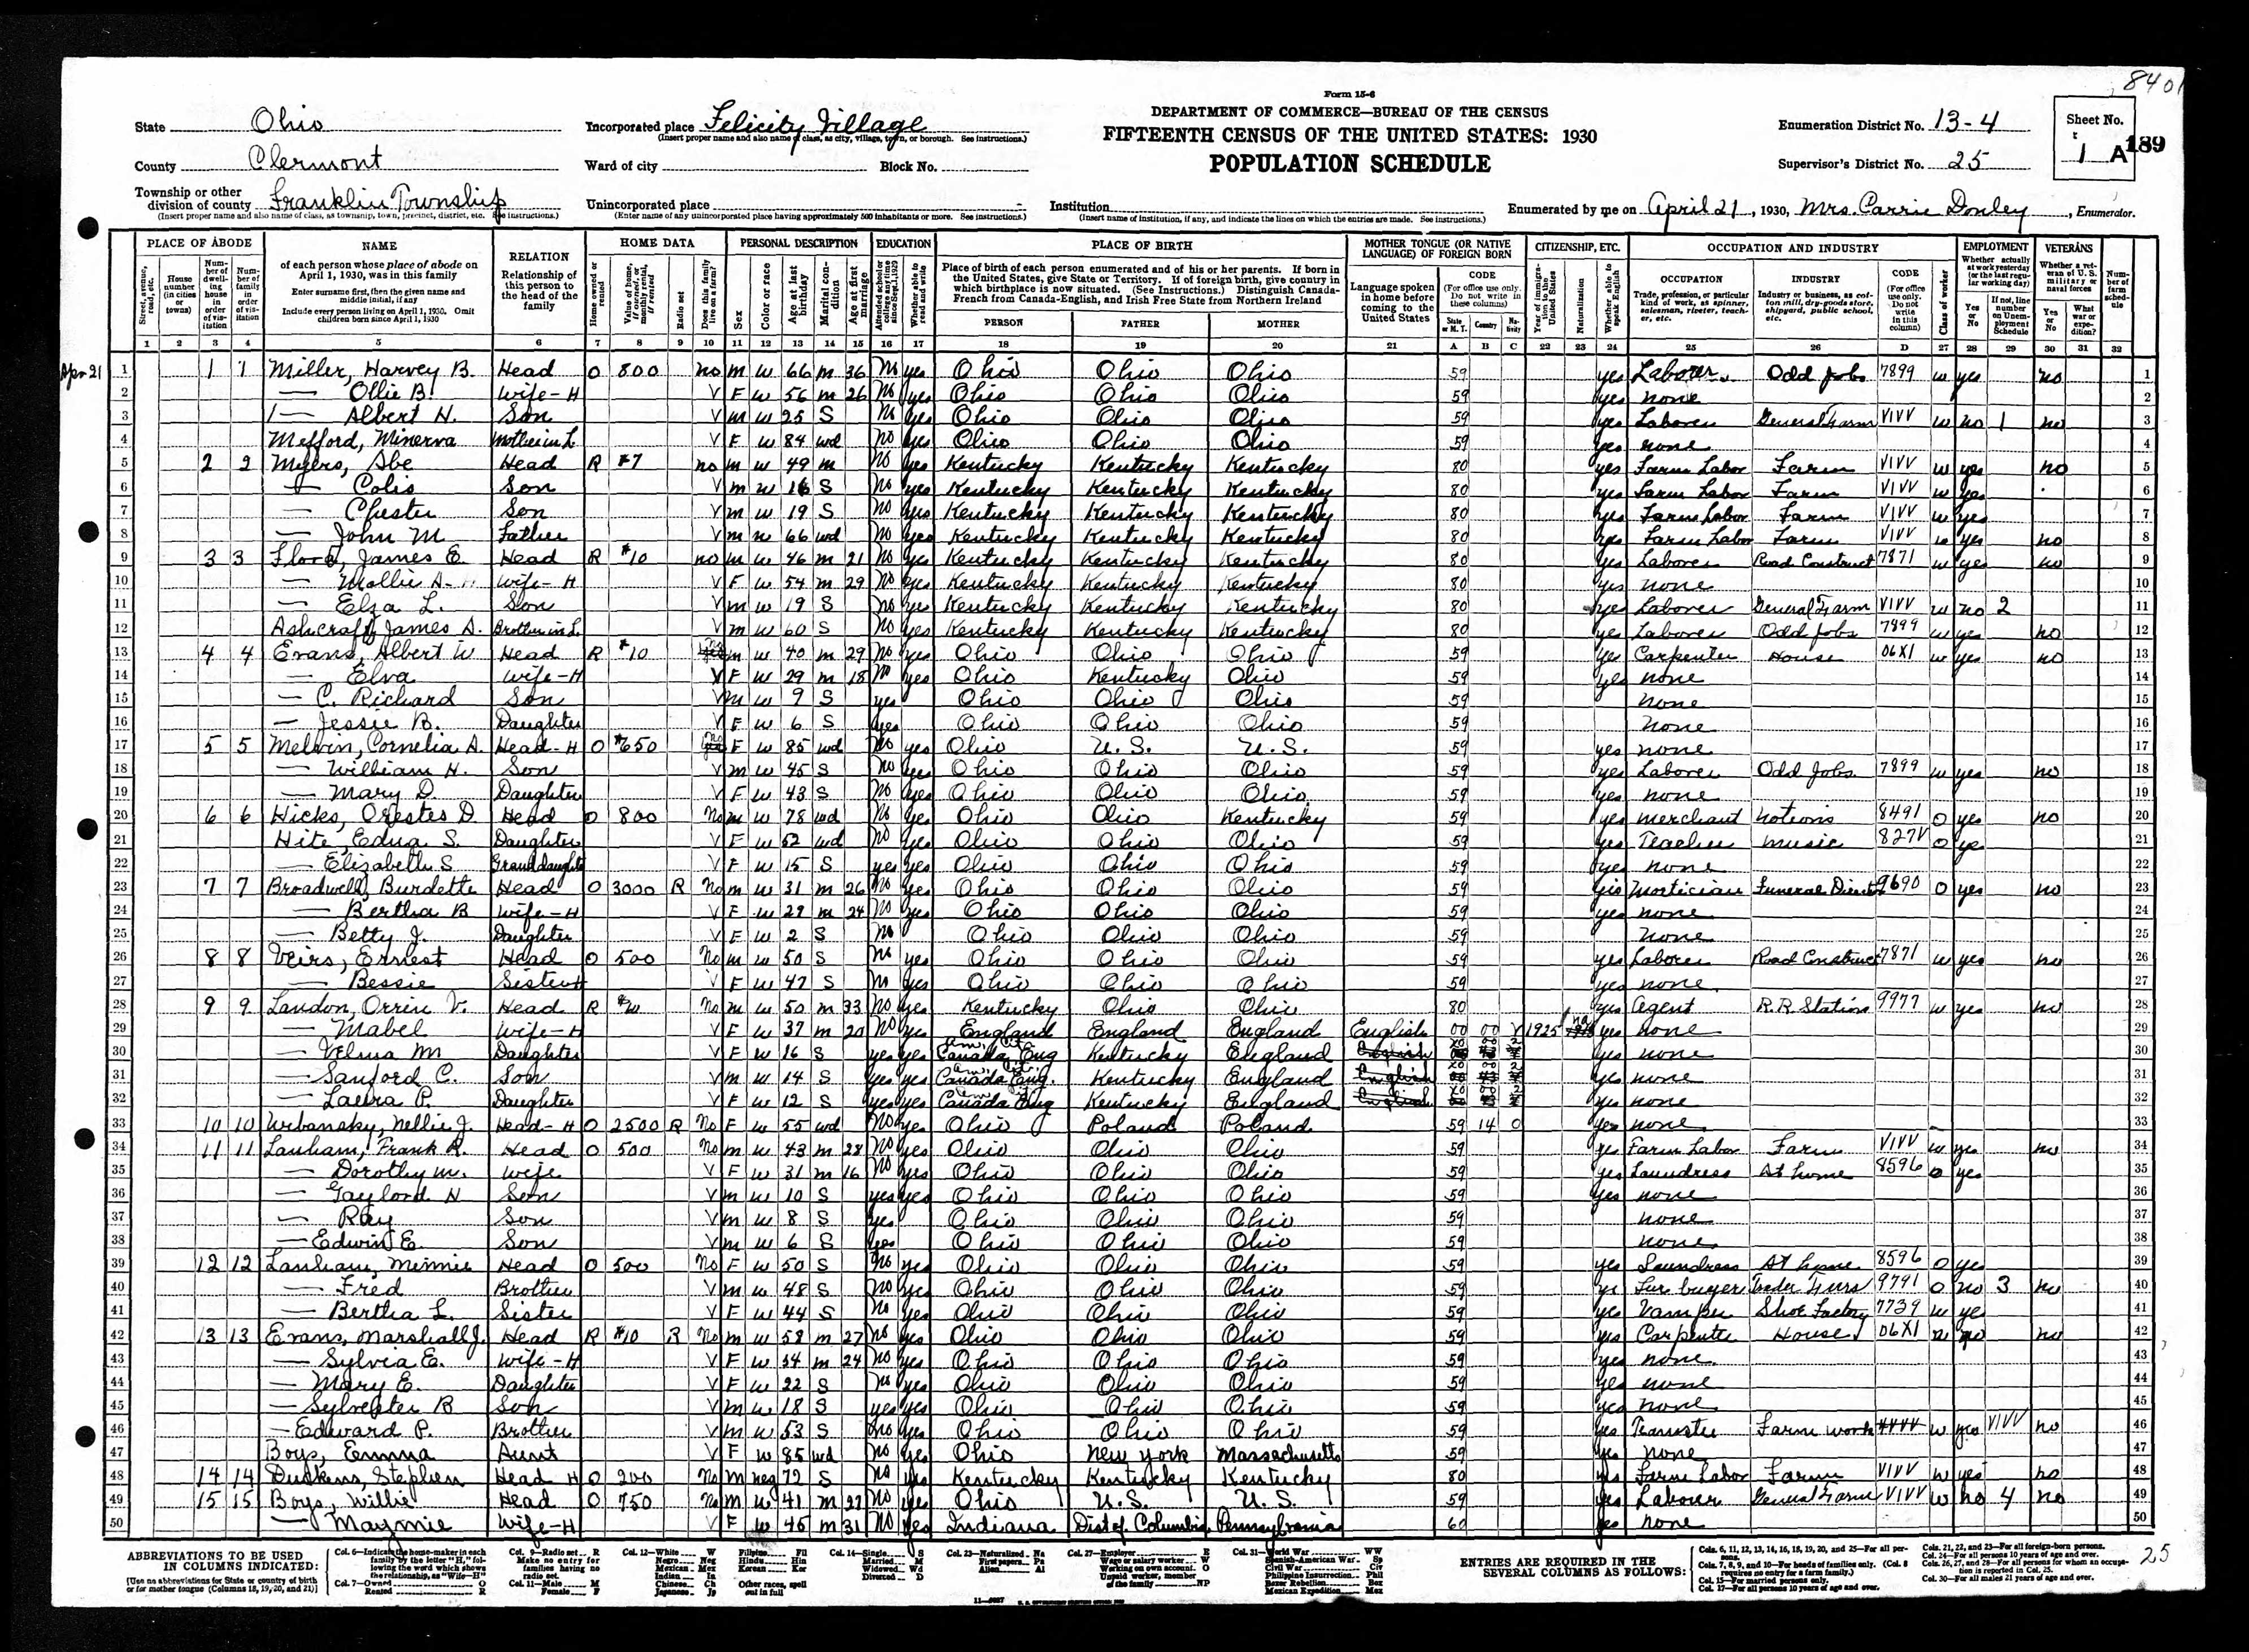 8401
Form 15-6
DEPARTMENT OF COMMERCE—BUREAU OF THE CENSUS
FIFTEENTH CENSUS OF THE UNITED STATES: 1930
POPULATION SCHEDULE
State Ohio
County Clermont
Township or other division of county Franklin Township
(Insert proper name and also name of class, as township, town, precinct, district, etc. See instructions.)
Incorporated place Felicity Village
(Insert proper name and also name of class, as city, village, town, or borough. See instructions.)
Ward of city Block No.
Unincorporated place
(Enter name of any unincorporated place having approximately 500 inhabitants or more. See instructions.)
Institution
(Insert name of institution, if any, and indicate the lines on which the entries are made. See instructions.)
Enumeration District No. 13-4
Supervisor's District No. 25
Sheet No. 1 A 189
Enumerated by me on April 21, 1930, Mrs. Carrie Donley, Enumerator.
PLACE OF ABODE NAME RELATION HOME DATA PERSONAL DESCRIPTION EDUCATION PLACE OF BIRTH MOTHER TONGUE (OR NATIVE LANGUAGE) OF FOREIGN BORN CITIZENSHIP, ETC. OCCUPATION AND INDUSTRY EMPLOYMENT VETERANS
of each person whose place of abode on April 1, 1930, was in this family
Enter surname first, then the given name and middle initial, if any
Include every person living on April 1, 1930. Omit children born since April 1, 1930
Relationship of this person to the head of the family
Place of birth of each person enumerated and of his or her parents. If born in the United States, give State or Territory. If of foreign birth, give country in which birthplace is now situated. (See Instructions.) Distinguish Canada-French from Canada-English, and Irish Free State from Northern Ireland
PERSON FATHER MOTHER
Language spoken in home before coming to the United States
OCCUPATION INDUSTRY CODE
1 2 3 4 5 6 7 8 9 10 11 12 13 14 15 16 17 18 19 20 21 A B C 22 23 24 25 26 D 27 28 29 30 31 32
Apr 21 1 1 1 Miller, Harvey B. Head O 800 no m w 66 m 36 No yes Ohio Ohio Ohio 59 yes Laborer Odd jobs 7899 w yes no 1
2 — Ollie B. Wife-H V F w 56 m 26 No yes Ohio Ohio Ohio 59 yes none 2
3 — Albert H. Son V m w 25 S No yes Ohio Ohio Ohio 59 yes Laborer General Farm VIVV w no 1 no 3
4 Mefford, Minerva Mother in L V F w 84 wd No yes Ohio Ohio Ohio 59 yes none 4
5 2 2 Myers, Abe Head R $7 no m w 49 m No yes Kentucky Kentucky Kentucky 80 yes Farm Labor Farm VIVV w yes no 5
6 — Colis Son V m w 16 S No yes Kentucky Kentucky Kentucky 80 yes Farm Labor Farm VIVV w yes 6
7 — Chester Son V m w 19 S No yes Kentucky Kentucky Kentucky 80 yes Farm Labor Farm VIVV w yes 7
8 — John M Father V m w 66 wd No yes Kentucky Kentucky Kentucky 80 yes Farm Labor Farm VIVV w yes no 8
9 3 3 Flora, James E. Head R $10 no m w 46 m 21 No yes Kentucky Kentucky Kentucky 80 yes Laborer Road Construct 7871 w yes no 9
10 — Mollie A. Wife-H V F w 54 m 29 No yes Kentucky Kentucky Kentucky 80 yes none 10
11 — Elza L. Son V m w 19 S No yes Kentucky Kentucky Kentucky 80 yes Laborer General Farm VIVV w no 2 11
12 Ashcraft, James A. Brother in L. V m w 60 S No yes Kentucky Kentucky Kentucky 80 yes Laborer Odd Jobs 7899 w yes no 12
13 4 4 Evans, Albert W Head R $10 no m w 40 m 29 No yes Ohio Ohio Ohio 59 yes Carpenter House 06X1 w yes no 13
14 — Elva Wife-H V F w 29 m 18 No yes Ohio Kentucky Ohio 59 yes none 14
15 — C. Richard Son V m w 9 S yes Ohio Ohio Ohio 59 none 15
16 — Jessie B. Daughter V F w 6 S yes Ohio Ohio Ohio 59 none 16
17 5 5 Melvin, Cornelia A. Head-H O $650 no F w 85 wd No yes Ohio U.S. U.S. 59 yes none 17
18 — William H. Son V m w 45 S No yes Ohio Ohio Ohio 59 yes Laborer Odd Jobs 7899 w yes no 18
19 — Mary D. Daughter V F w 43 S No yes Ohio Ohio Ohio 59 yes none 19
20 6 6 Hicks, Orestes D. Head O 800 No m w 78 wd No yes Ohio Ohio Kentucky 59 yes merchant notions 8491 O yes no 20
21 Hite, Edna S. Daughter V F w 52 wd No yes Ohio Ohio Ohio 59 yes Teacher music 827V O yes 21
22 — Elizabeth S Granddaughter V F w 15 S yes yes Ohio Ohio Ohio 59 yes none 22
23 7 7 Broadwell, Burdette Head O 3000 R No m w 31 m 26 No yes Ohio Ohio Ohio 59 yes Mortician Funeral Director 9690 O yes no 23
24 — Bertha B Wife-H V F w 29 m 24 No yes Ohio Ohio Ohio 59 yes none 24
25 — Betty J. Daughter V F w 2 S No Ohio Ohio Ohio 59 none 25
26 8 8 Veirs, Ernest Head O 500 No m w 50 S No yes Ohio Ohio Ohio 59 yes Laborer Road Construct 7871 w yes no 26
27 — Bessie Sister H V F w 47 S No yes Ohio Ohio Ohio 59 yes none 27
28 9 9 Laudon, Orrin V. Head R No m w 50 m 33 No yes Kentucky Ohio Ohio 80 yes Agent R.R. Station 9977 w yes no 28
29 — Mabel Wife-H V F w 37 m 20 No yes England England England English 00 00 V 1925 na yes none 29
30 — Velma M Daughter V F w 16 S yes yes Canada Eng Am. Cit. Kentucky England English yes none 30
31 — Sanford C. Son V m w 14 S yes yes Canada Eng. Am. Cit. Kentucky England English yes none 31
32 — Laura P. Daughter V F w 12 S yes yes Canada Eng Kentucky England English yes none 32
33 10 10 Urbansky, Nellie J. Head-H O 2500 R No F w 55 wd No yes Ohio Poland Poland 59 14 0 yes none 33
34 11 11 Lanham, Frank R. Head O 500 No m w 43 m 28 No yes Ohio Ohio Ohio 59 yes Farm Labor Farm VIVV w yes no 34
35 — Dorothy M. wife V F w 31 m 16 No yes Ohio Ohio Ohio 59 yes Laundress At home 8596 O yes 35
36 — Gaylord H Son V m w 10 S yes yes Ohio Ohio Ohio 59 yes none 36
37 — Ray Son V m w 8 S yes Ohio Ohio Ohio 59 none 37
38 — Edwin E. Son V m w 6 S yes Ohio Ohio Ohio 59 none 38
39 12 12 Lanham, Minnie Head O 500 No F w 50 S No yes Ohio Ohio Ohio 59 yes Laundress At home 8596 O yes 39
40 — Fred Brother V m w 48 S No yes Ohio Ohio Ohio 59 yes Fur buyer Trader Furs 9791 O no 3 no 40
41 — Bertha L. Sister V F w 44 S No yes Ohio Ohio Ohio 59 yes Vamper Shoe Factory 7739 w yes 41
42 13 13 Evans, Marshall J. Head R $10 R No m w 58 m 27 No yes Ohio Ohio Ohio 59 yes Carpenter House 06X1 w no 42
43 — Sylvia E. Wife-H V F w 54 m 24 No yes Ohio Ohio Ohio 59 yes none 43
44 — Mary E. Daughter V F w 22 S No yes Ohio Ohio Ohio 59 yes none 44
45 — Sylvester B Son V m w 18 S yes yes Ohio Ohio Ohio 59 yes none 45
46 — Edward P. Brother V m w 53 S No yes Ohio Ohio Ohio 59 yes Teamster Farm work w yes VIVV no 46
47 Boys, Emma Aunt V F w 85 wd No yes Ohio New York Massachusetts 59 yes none 47
48 14 14 Stephen Head H O 200 No m neg 72 S No yes Kentucky Kentucky Kentucky 80 yes Farm Labor Farm VIVV w yes no 48
49 15 15 Boys, Willie Head O 750 No m w 41 m 27 No yes Ohio U.S. U.S. 59 yes Laborer General Farm VIVV w no 4 no 49
50 — Maymie Wife-H V F w 45 m 31 No yes Indiana Dist of Columbia Pennsylvania 60 yes none 50
ABBREVIATIONS TO BE USED IN COLUMNS INDICATED:
[Use no abbreviations for State or country of birth or for mother tongue (Columns 18, 19, 20, and 21)]
Col. 6—Indicate the home-maker in each family by the letter "H," following the word which shows the relationship, as "Wife—H"
Col. 7—Owned O Rented R
Col. 9—Radio set R Make no entry for families having no radio set
Col. 11—Male M Female F
Col. 12—White W Negro Neg Mexican Mex Indian In Chinese Ch Japanese Jp Filipino Fil Hindu Hin Korean Kor Other races, spell out in full
Col. 14—Single S Married M Widowed Wd Divorced D
Col. 23—Naturalized Na First papers Pa Alien Al
Col. 27—Employer E Wage or salary worker W Working on own account O Unpaid worker, member of the family NP
Col. 31—World War WW Spanish-American War Sp Civil War Civ Philippine Insurrection Phil Boxer Rebellion Box Mexican Expedition Mex
ENTRIES ARE REQUIRED IN THE SEVERAL COLUMNS AS FOLLOWS:
Cols. 6, 11, 12, 13, 14, 16, 18, 19, 20, and 25—For all persons.
Cols. 7, 8, 9, and 10—For heads of families only. (Col. 8 requires no entry for a farm family.)
Col. 15—For married persons only.
Col. 17—For all persons 10 years of age and over.
Cols. 21, 22, and 23—For all foreign-born persons.
Col. 24—For all persons 10 years of age and over.
Cols. 26, 27, and 28—For all persons for whom an occupation is reported in Col. 25.
Col. 30—For all males 21 years of age and over.
25